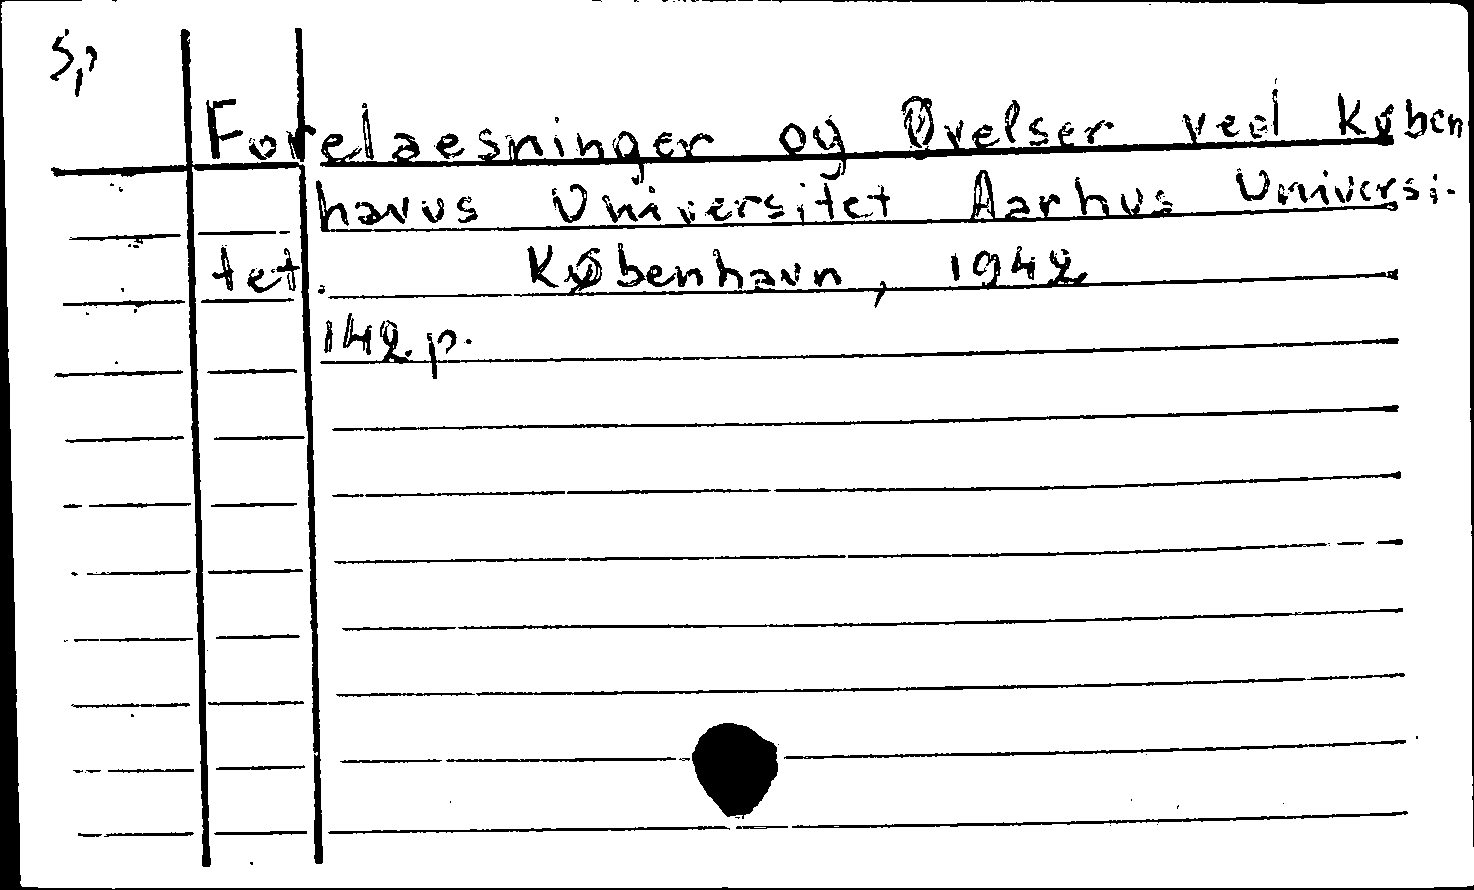 Sp
Forelaesninger og Øvelser ved Køben
havns Universitet Aarhus Universi-
tet. København, 1942
142 p.